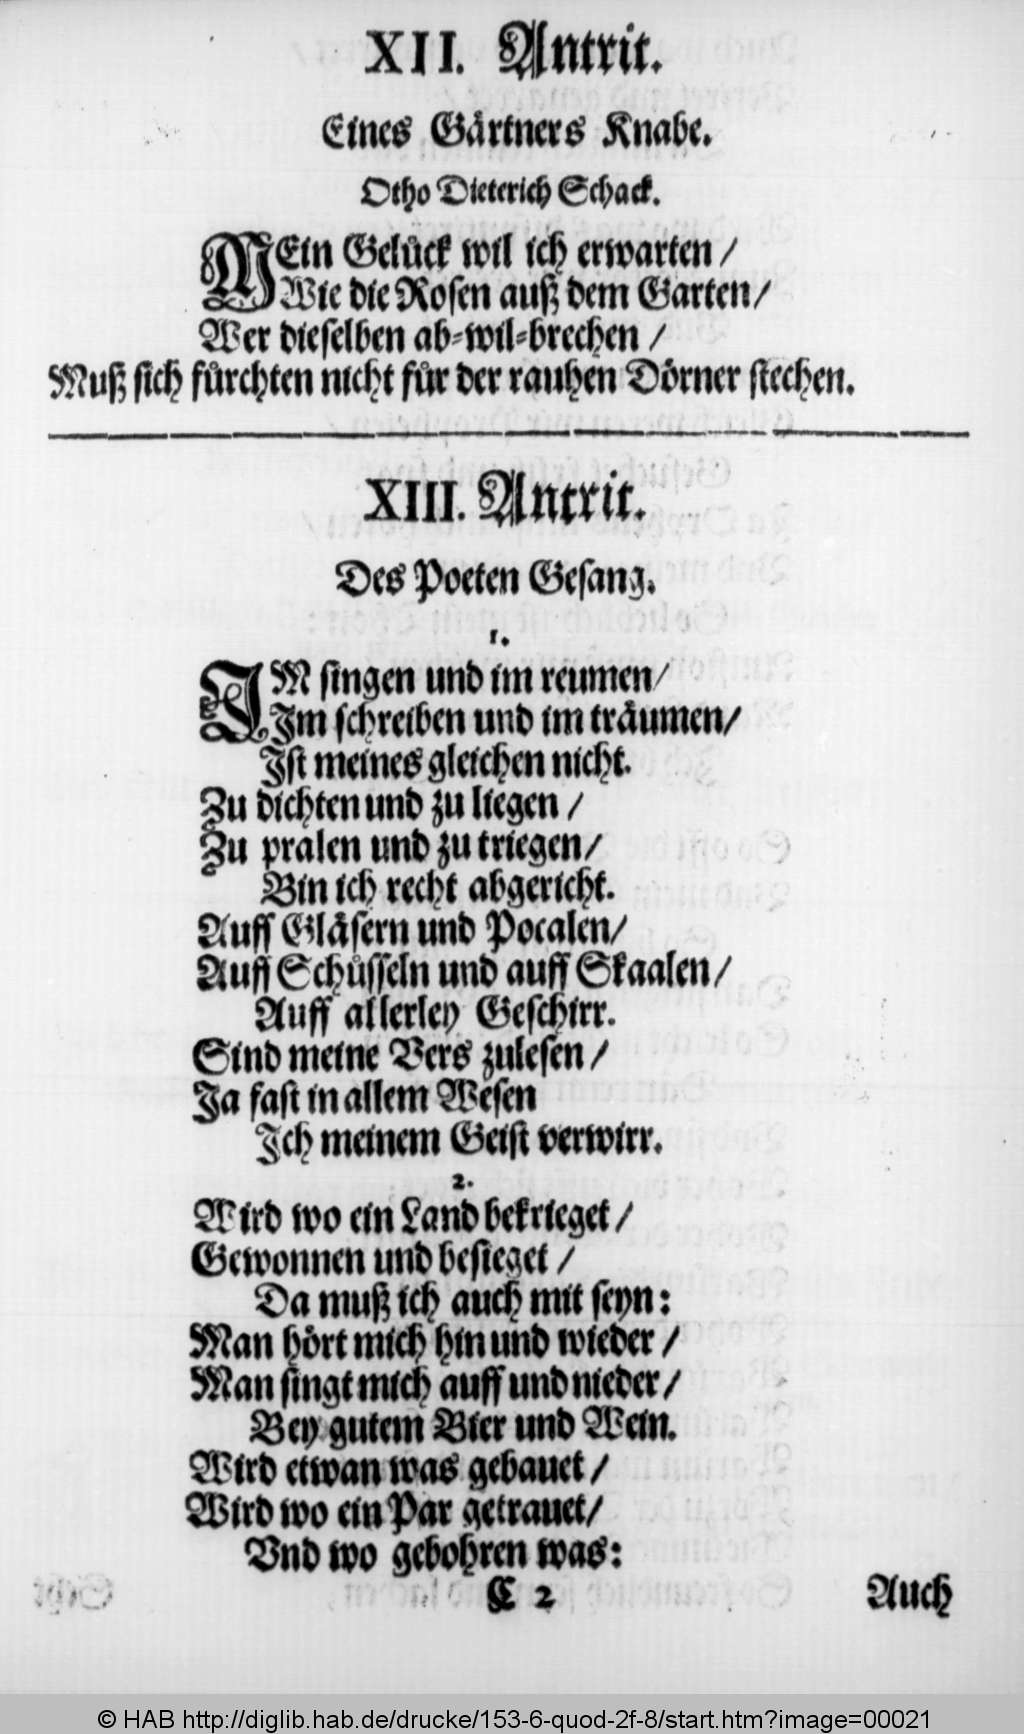 XII. Antrit.
Eines Gärtners Knabe.
Otho Dieterich Schack.
MEin Gelück wil ich erwarten /
Wie die Rosen auß dem Garten/
Wer dieselben ab-wil-brechen /
Muß sich fürchten nicht für der rauhen Dörner stechen.
XIII. Antrit.
Des Poeten Gesang.
1.
IM singen und im reumen/
Im schreiben und im träumen/
Ist meines gleichen nicht.
Zu dichten und zu liegen /
Zu pralen und zu triegen/
Bin ich recht abgericht.
Auff Gläsern und Pocalen/
Auff Schüsseln und auff Skaalen/
Auff allerley Geschirr.
Sind meine Vers zulesen /
Ja fast in allem Wesen
Ich meinem Geist verwirr.
2.
Wird wo ein Land bekrieget /
Gewonnen und besieget /
Da muß ich auch mit seyn:
Man hört mich hin und wieder /
Man singt mich auff und nieder /
Bey gutem Bier und Wein.
Wird etwan was gebauet /
Wird wo ein Par getrauet/
Vnd wo gebohren was:
C 2
Auch
© HAB http://diglib.hab.de/drucke/153-6-quod-2f-8/start.htm?image=00021